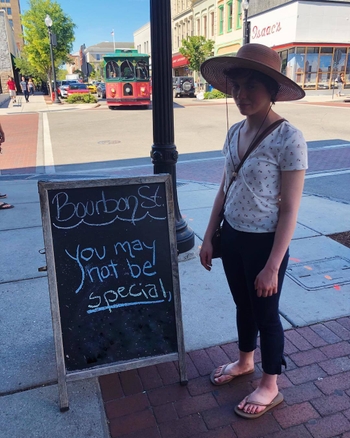 Isaac's
Bourbon St.
You may
not be
special,